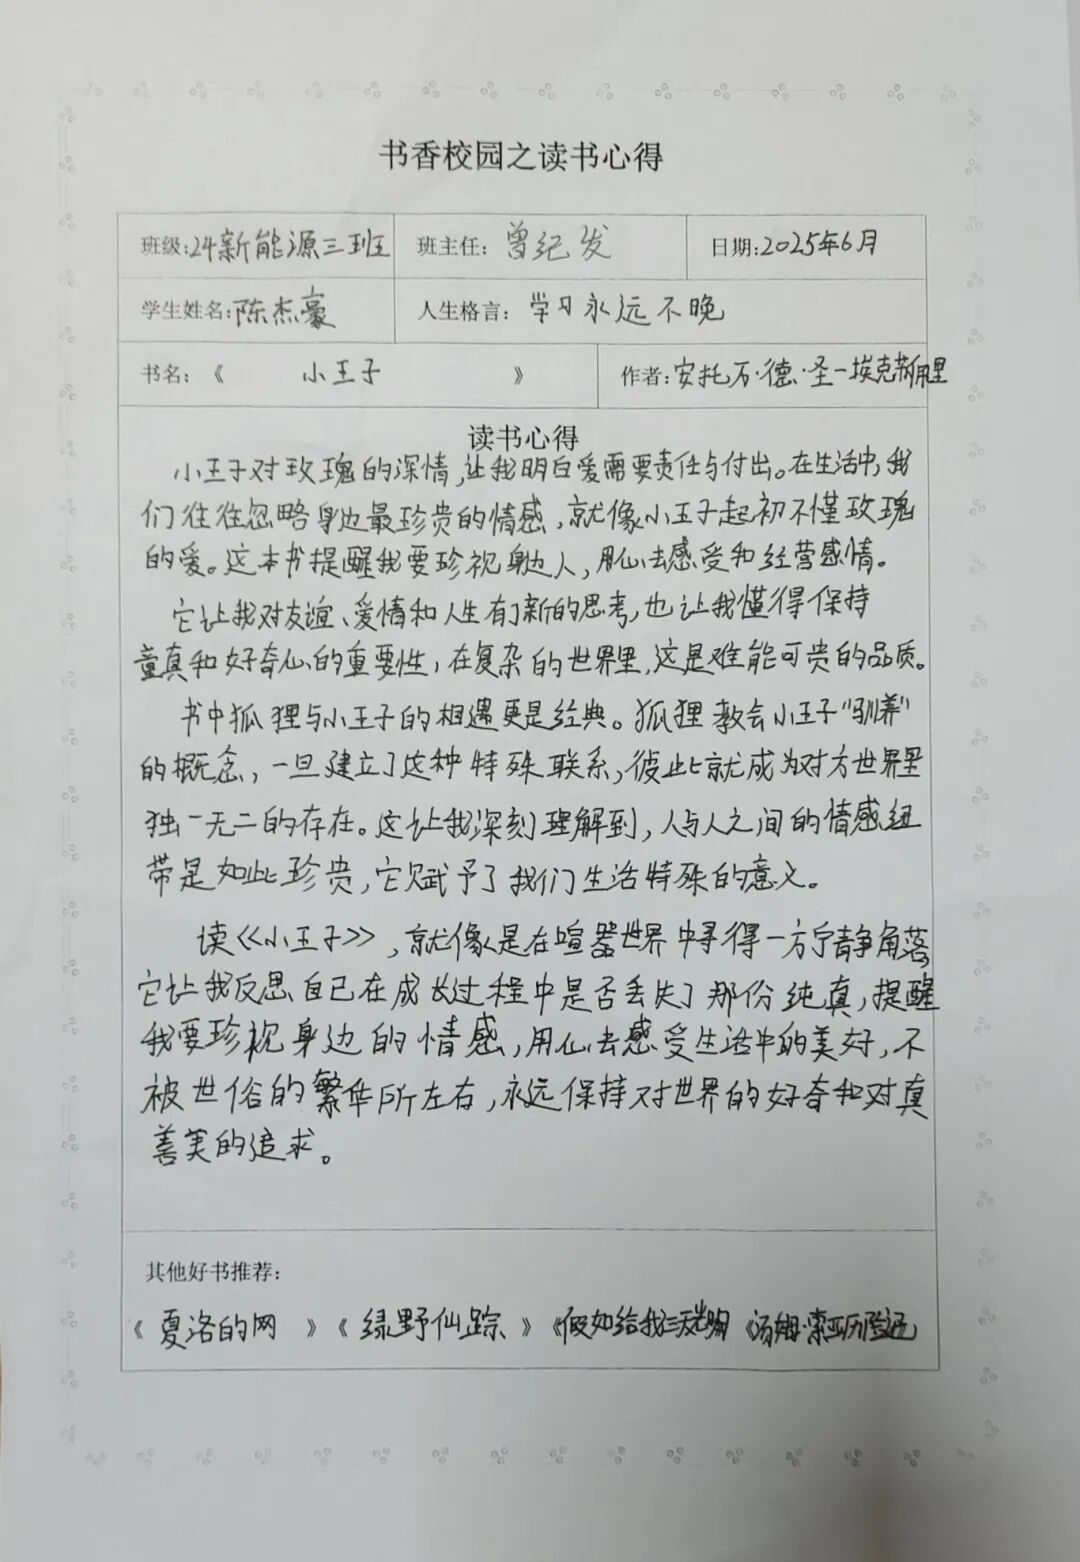 书香校园之读书心得
班级:24新能源三班 班主任: 曾纪发 日期:2025年6月
学生姓名:陈杰豪 人生格言: 学习永远不晚
书名:《 小王子 》 作者:安托万·德·圣一埃克苏佩里
读书心得
小王子对玫瑰的深情,让我明白爱需要责任与付出。在生活中,我
们往往忽略身边最珍贵的情感,就像小王子起初不懂玫瑰
的爱。这本书提醒我要珍视身边人,用心去感受和经营感情。
它让我对友谊、爱情和人生有了新的思考,也让我懂得保持
童真和好奇心的重要性,在复杂的世界里,这是难能可贵的品质。
书中狐狸与小王子的相遇更是经典。狐狸教会小王子“驯养”
的概念,一旦建立了这种特殊联系,彼此就成为对方世界里
独一无二的存在。这让我深刻理解到,人与人之间的情感纽
带是如此珍贵,它赋予了我们生活特殊的意义。
读《小王子》,就像是在喧嚣世界中寻得一方宁静角落
它让我反思自己在成长过程中是否丢失了那份纯真,提醒
我要珍视身边的情感,用心去感受生活中的美好,不
被世俗的繁华所左右,永远保持对世界的好奇和对真
善美的追求。
其他好书推荐:
《 夏洛的网 》《 绿野仙踪 》《假如给我三天光明 《汤姆·索亚历险记